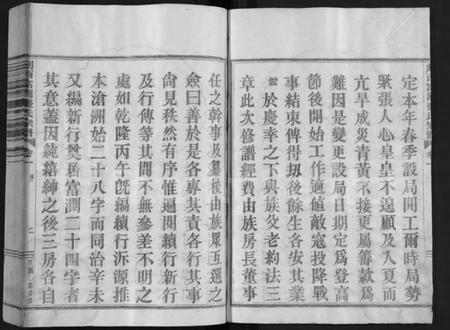 定本年春季設局開工爾時局勢
緊張人心皇皇不遑顧及入夏而
亢旱成災青黃不接更屬籌款爲
難因是變更設局日期定爲登高
節後開始工作適值敵寇投降戰
事結束俾得刼後餘生各安其業
於慶幸之下與族父老約法三
章此次修譜經費由族房長董事
任之幹事及纂校由族眾互選之
僉曰善於是各專其責各行其事
尙見秩然有序惟過閱續行新行
及行傳等其間不無參差不明之
處如乾隆丙午旣編續行泝源推
本滄洲始二十八字而同治辛未
又編新行奠居富潤二十四字者
其意蓋因純縉紳之後三房各自